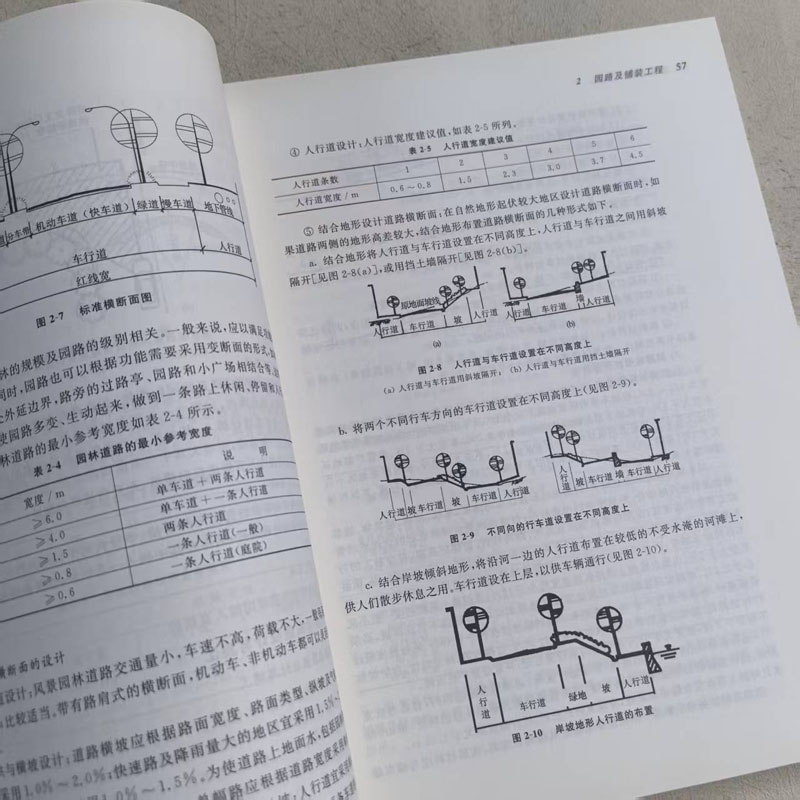 机动车道(快车道)
绿道
慢车道
地下管线
车行道
人行道
红线宽
图 2-7 标准横断面图
林的规模及园路的级别相关。一般来说,应以满足
同时,园路也可以根据功能需要采用变断面的形式,如
外延边界,路旁的过路亭、园路和小广场相结合等,
使园路多变、生动起来,做到一条路上休闲、
林道路的最小参考宽度如表 2-4 所示。
表 2-4 园林道路的最小参考宽度
宽度/m 说 明
≥6.0 单车道+两条人行道
≥4.0 单车道+一条人行道
≥1.5 两条人行道
≥0.8 一条人行道(一般)
≥0.6 一条人行道(庭院)
横断面的设计
设计:风景园林道路交通量小,车速不高,荷载不大,一般
比较适当。带有路肩式的横断面,机动车、非机动车都可以
与横坡设计:道路横坡应根据路面宽度、路面类型、纵坡及
采用1.0%~2.0%;快速路及降雨量大的地区宜采用1.5%
1.0%~1.5%。为使道路上地面水,包括
单幅路应根据道路宽度采用
坡;人行道宜采用
2 园路及铺装工程 57
④ 人行道设计:人行道宽度建议值,如表 2-5 所列。
表 2-5 人行道宽度建议值
人行道条数 1 2 3 4 5 6
人行道宽度/m 0.6~0.8 1.5 2.3 3.0 3.7 4.5
⑤ 结合地形设计道路横断面,在自然地形起伏较大地区设计道路横断面时,如
果道路两侧的地形高差较大,结合地形布置道路横断面的几种形式如下。
a. 结合地形将人行道与车行道设置在不同高度上,人行道与车行道之间用斜坡
隔开[见图 2-8(a)],或用挡土墙隔开[见图 2-8(b)]。
原地面坡线
人行道 车行道 坡 人行道
人行道 车行道 墙 人行道
(a) (b)
图 2-8 人行道与车行道设置在不同高度上
(a) 人行道与车行道用斜坡隔开;(b) 人行道与车行道用挡土墙隔开
b. 将两个不同行车方向的车行道设置在不同高度上(见图 2-9)。
人行道 坡 车行道 坡 车行道 人行道
人行道 坡 车行道 墙 车行道 人行道
图 2-9 不同向的行车道设置在不同高度上
c. 结合岸坡倾斜地形,将沿河一边的人行道布置在较低的不受水淹的河滩上,
供人们散步休息之用。车行道设在上层,以供车辆通行(见图 2-10)。
人行道 车行道 绿地 坡 人行道
图 2-10 岸坡地形人行道的布置